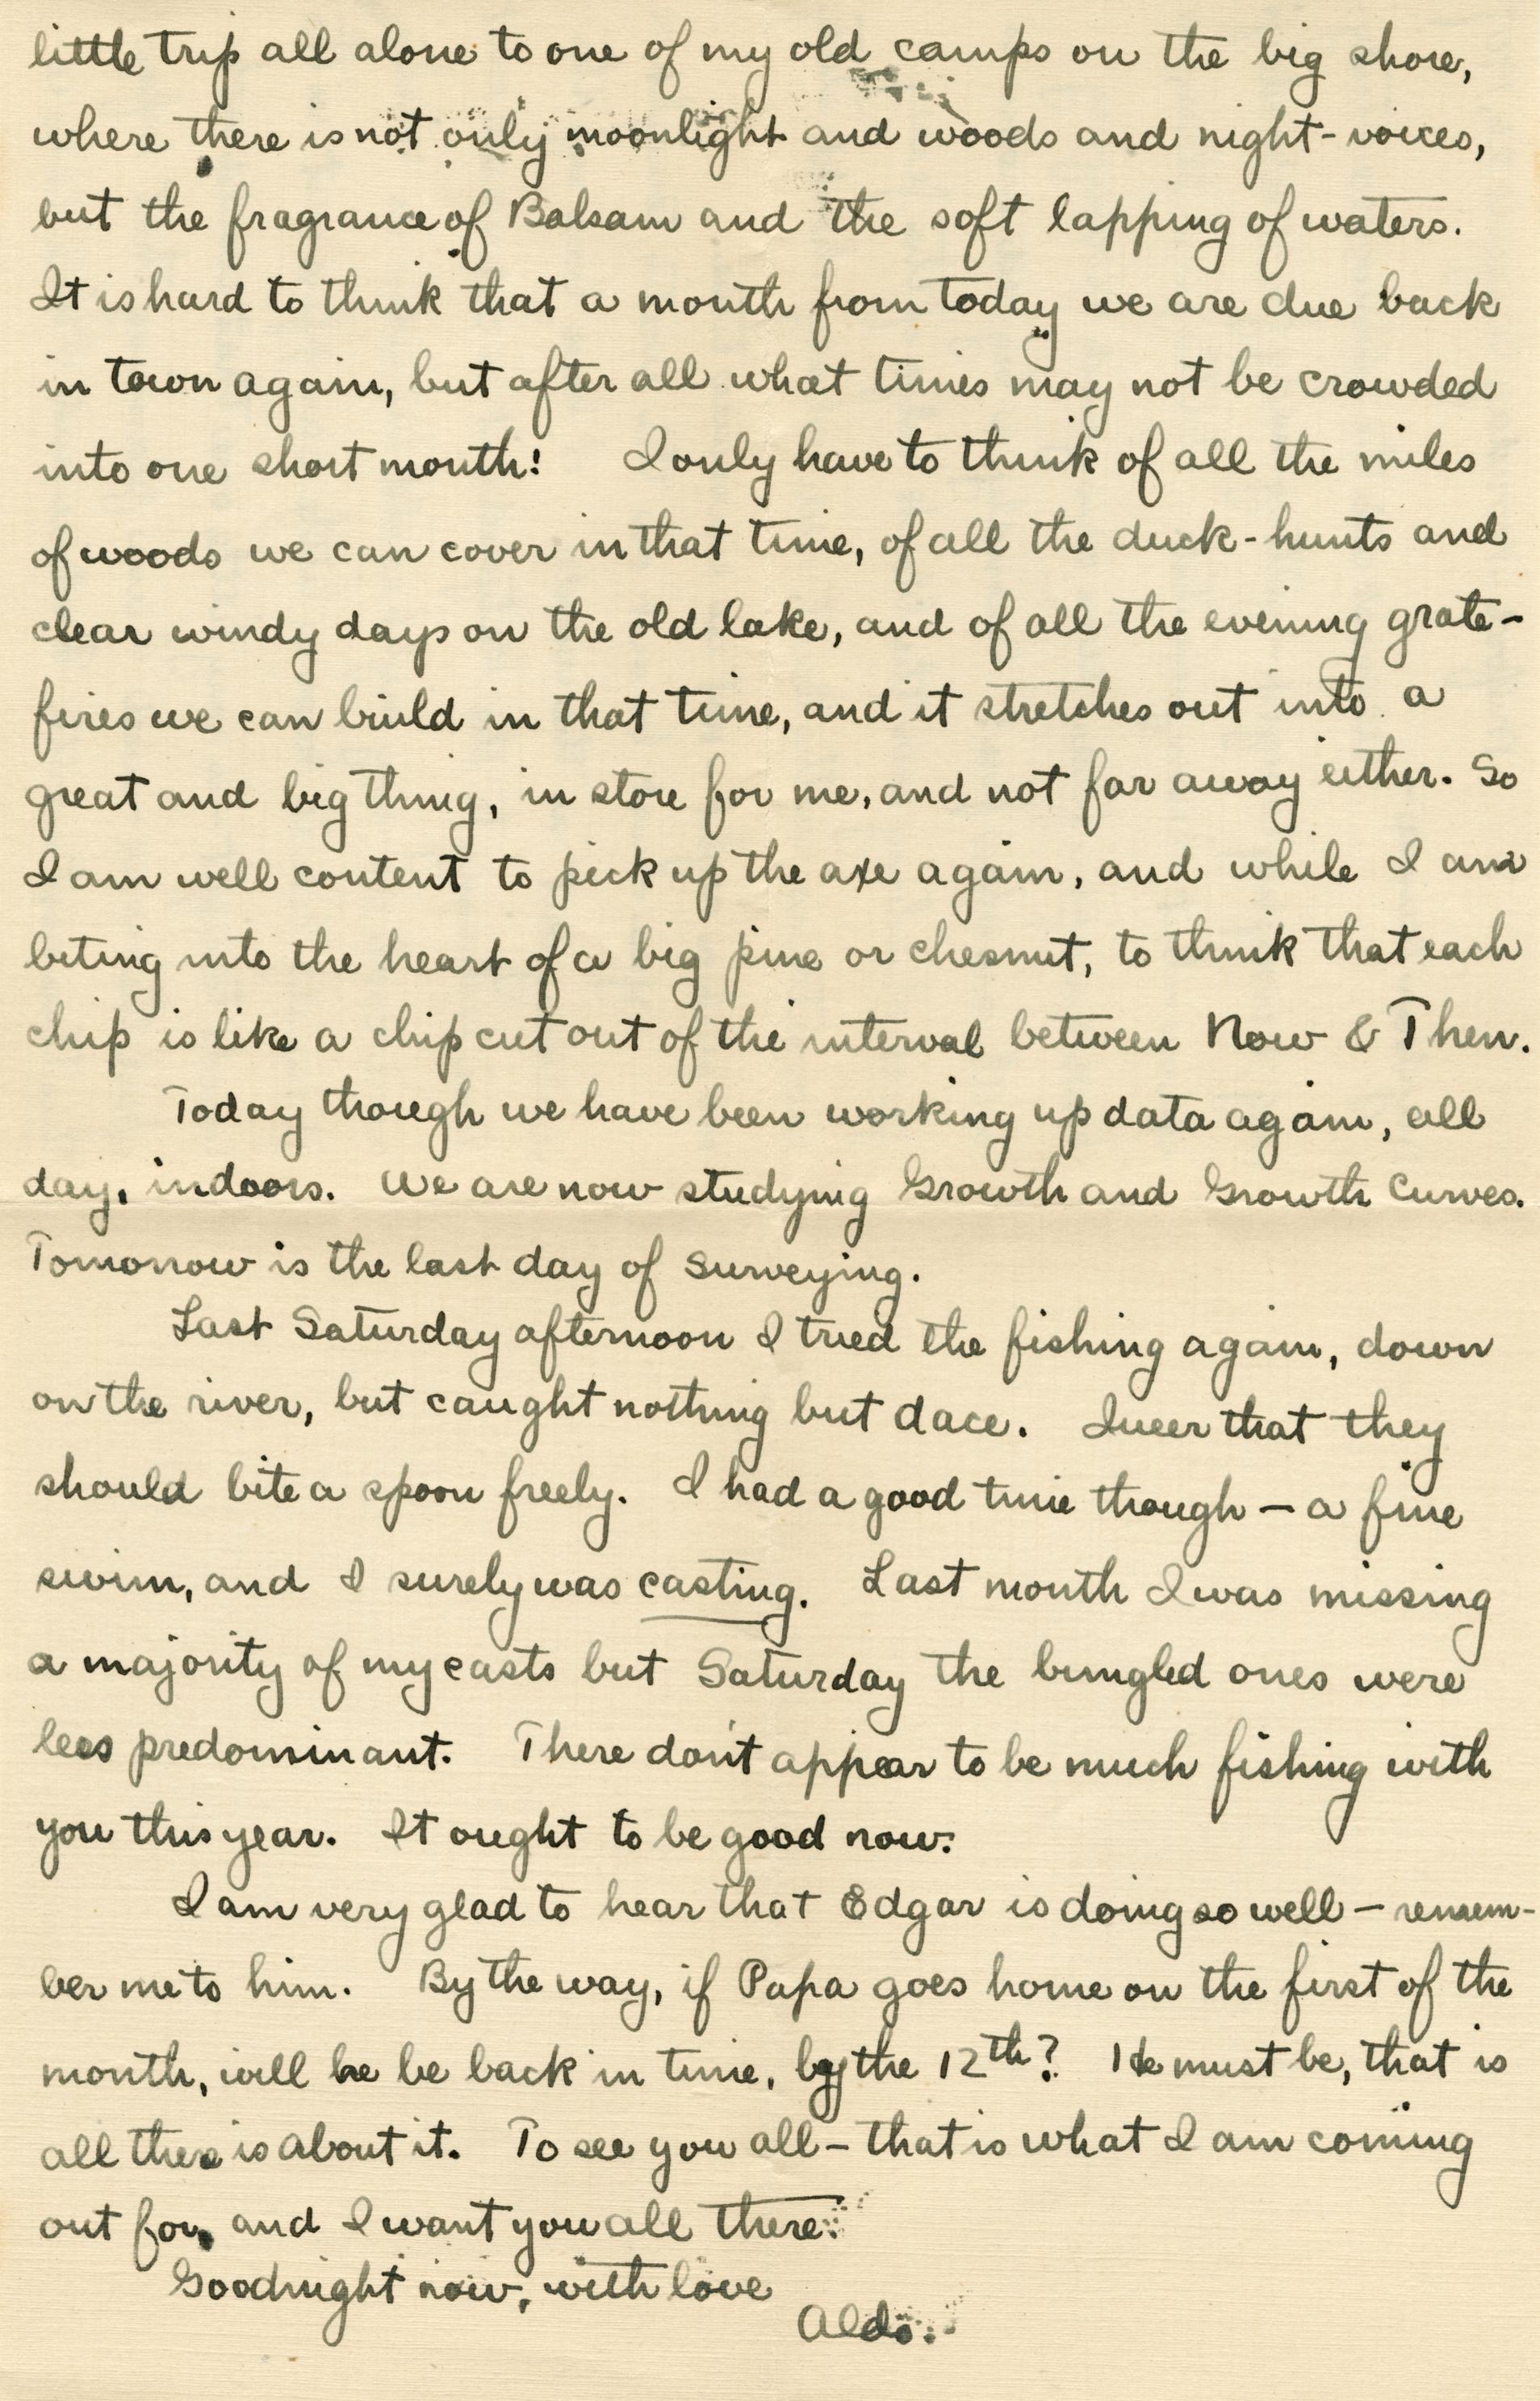 little trip all alone to one of my old camps on the big shore,
where there is not only moonlight and woods and night-voices,
but the fragrance of Balsam and the soft lapping of waters.
It is hard to think that a month from today we are due back
in town again, but after all what times may not be crowded
into one short month! I only have to think of all the miles
of woods we can cover in that time, of all the duck-hunts and
clear windy days on the old lake, and of all the evening grate-
fires we can build in that time, and it stretches out into a
great and big thing, in store for me, and not far away either. So
I am well content to pick up the axe again, and while I am
biting into the heart of a big pine or chesnut, to think that each
chip is like a chip cut out of the interval between Now & Then.
Today though we have been working up data again, all
day, indoors. We are now studying Growth and Growth Curves.
Tomorrow is the last day of Surveying.
Last Saturday afternoon I tried the fishing again, down
on the river, but caught nothing but dace. Queer that they
should bite a spoon freely. I had a good time though – a fine
swim, and I surely was casting. Last month I was missing
a majority of my casts but Saturday the bungled ones were
less predominant. There don't appear to be much fishing with
you this year. It ought to be good now.
I am very glad to hear that Edgar is doing so well – remem-
ber me to him. By the way, if Papa goes home on the first of the
month, will he be back in time, by the 12th? He must be, that is
all there is about it. To see you all – that is what I am coming
out for, and I want you all there.
Goodnight now, with love
Aldo.